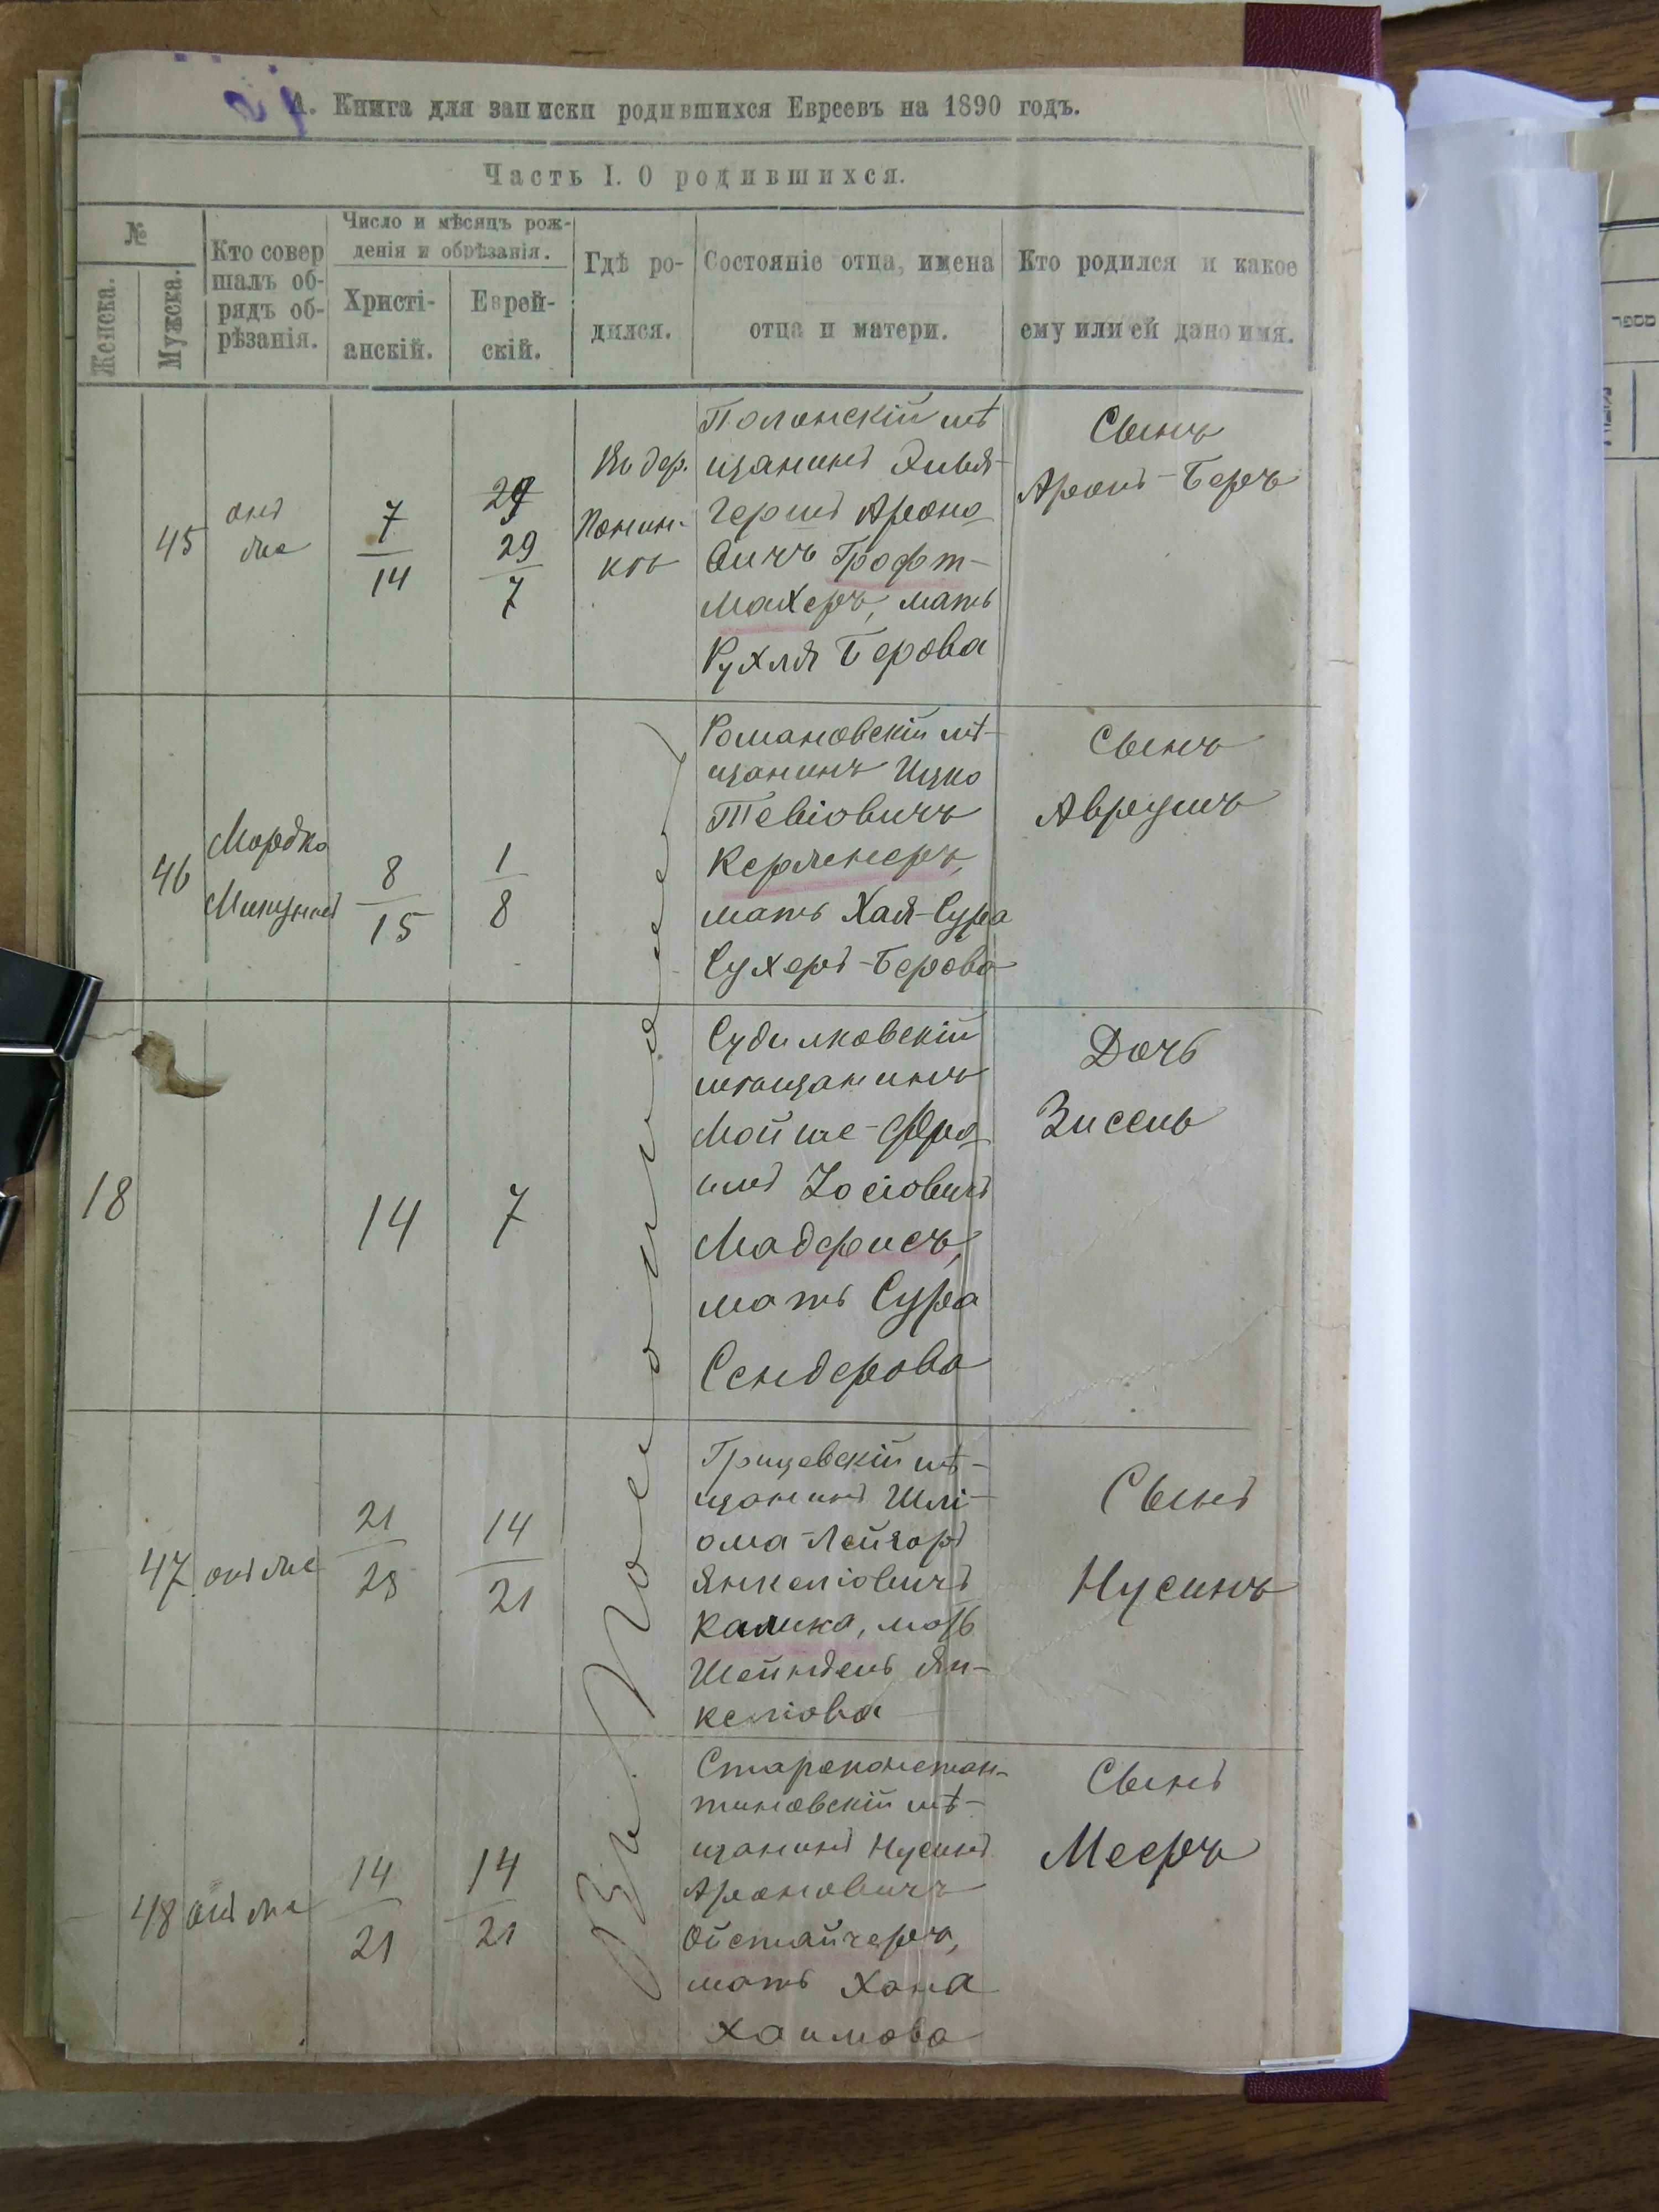 1. Книга для записки родившихся Евреевъ на 1890 годъ.
Часть I. О родившихся.
№
Женска.
Мужска.
Кто совер
шалъ об-
рядъ об-
рѣзанія.
Число и мѣсяцъ рож-
денія и обрѣзанія.
Христі-
анскій.
Еврей-
скій.
Гдѣ ро-
дился.
Состояніе отца, имена
отца и матери.
Кто родился и какое
ему или ей дано имя.
45
онъ
же
7
14
29
7
Въ дер.
Понин-
кѣ
Полонскій мѣ
щанинъ Элья-
Гершъ Ароно
вичъ Трофт-
Махеръ, мать
Рухля Берова
Сынъ
Аронъ-Беръ
46
Мордко
8
15
1
8
Романовскій мѣ-
щанинъ Ицко
Тевіовичъ
Керженеръ,
мать Хая-Сура
Сухеръ-Берова
Сынъ
Аврумъ
18
14
7
Судилковскій
мѣщанинъ
Мойше-Фро
имъ Іосіовичъ
Мадфисъ,
мать Сура
Сендерова
Дочь
Зисель
47
онъ же
21
28
14
21
Грицевскій мѣ-
щанинъ Шлі-
ома-Лейзоръ
Янкеліовичъ
Калика, мать
Шейндель Ян-
келіова
Сынъ
Нусинъ
48
онъ же
14
21
14
21
Въ Полонномъ
Староконстан-
тиновскій мѣ-
щанинъ Нусинъ
Ароновичъ
Ойстайчеръ,
мать Хана
Хаимова
Сынъ
Мееръ